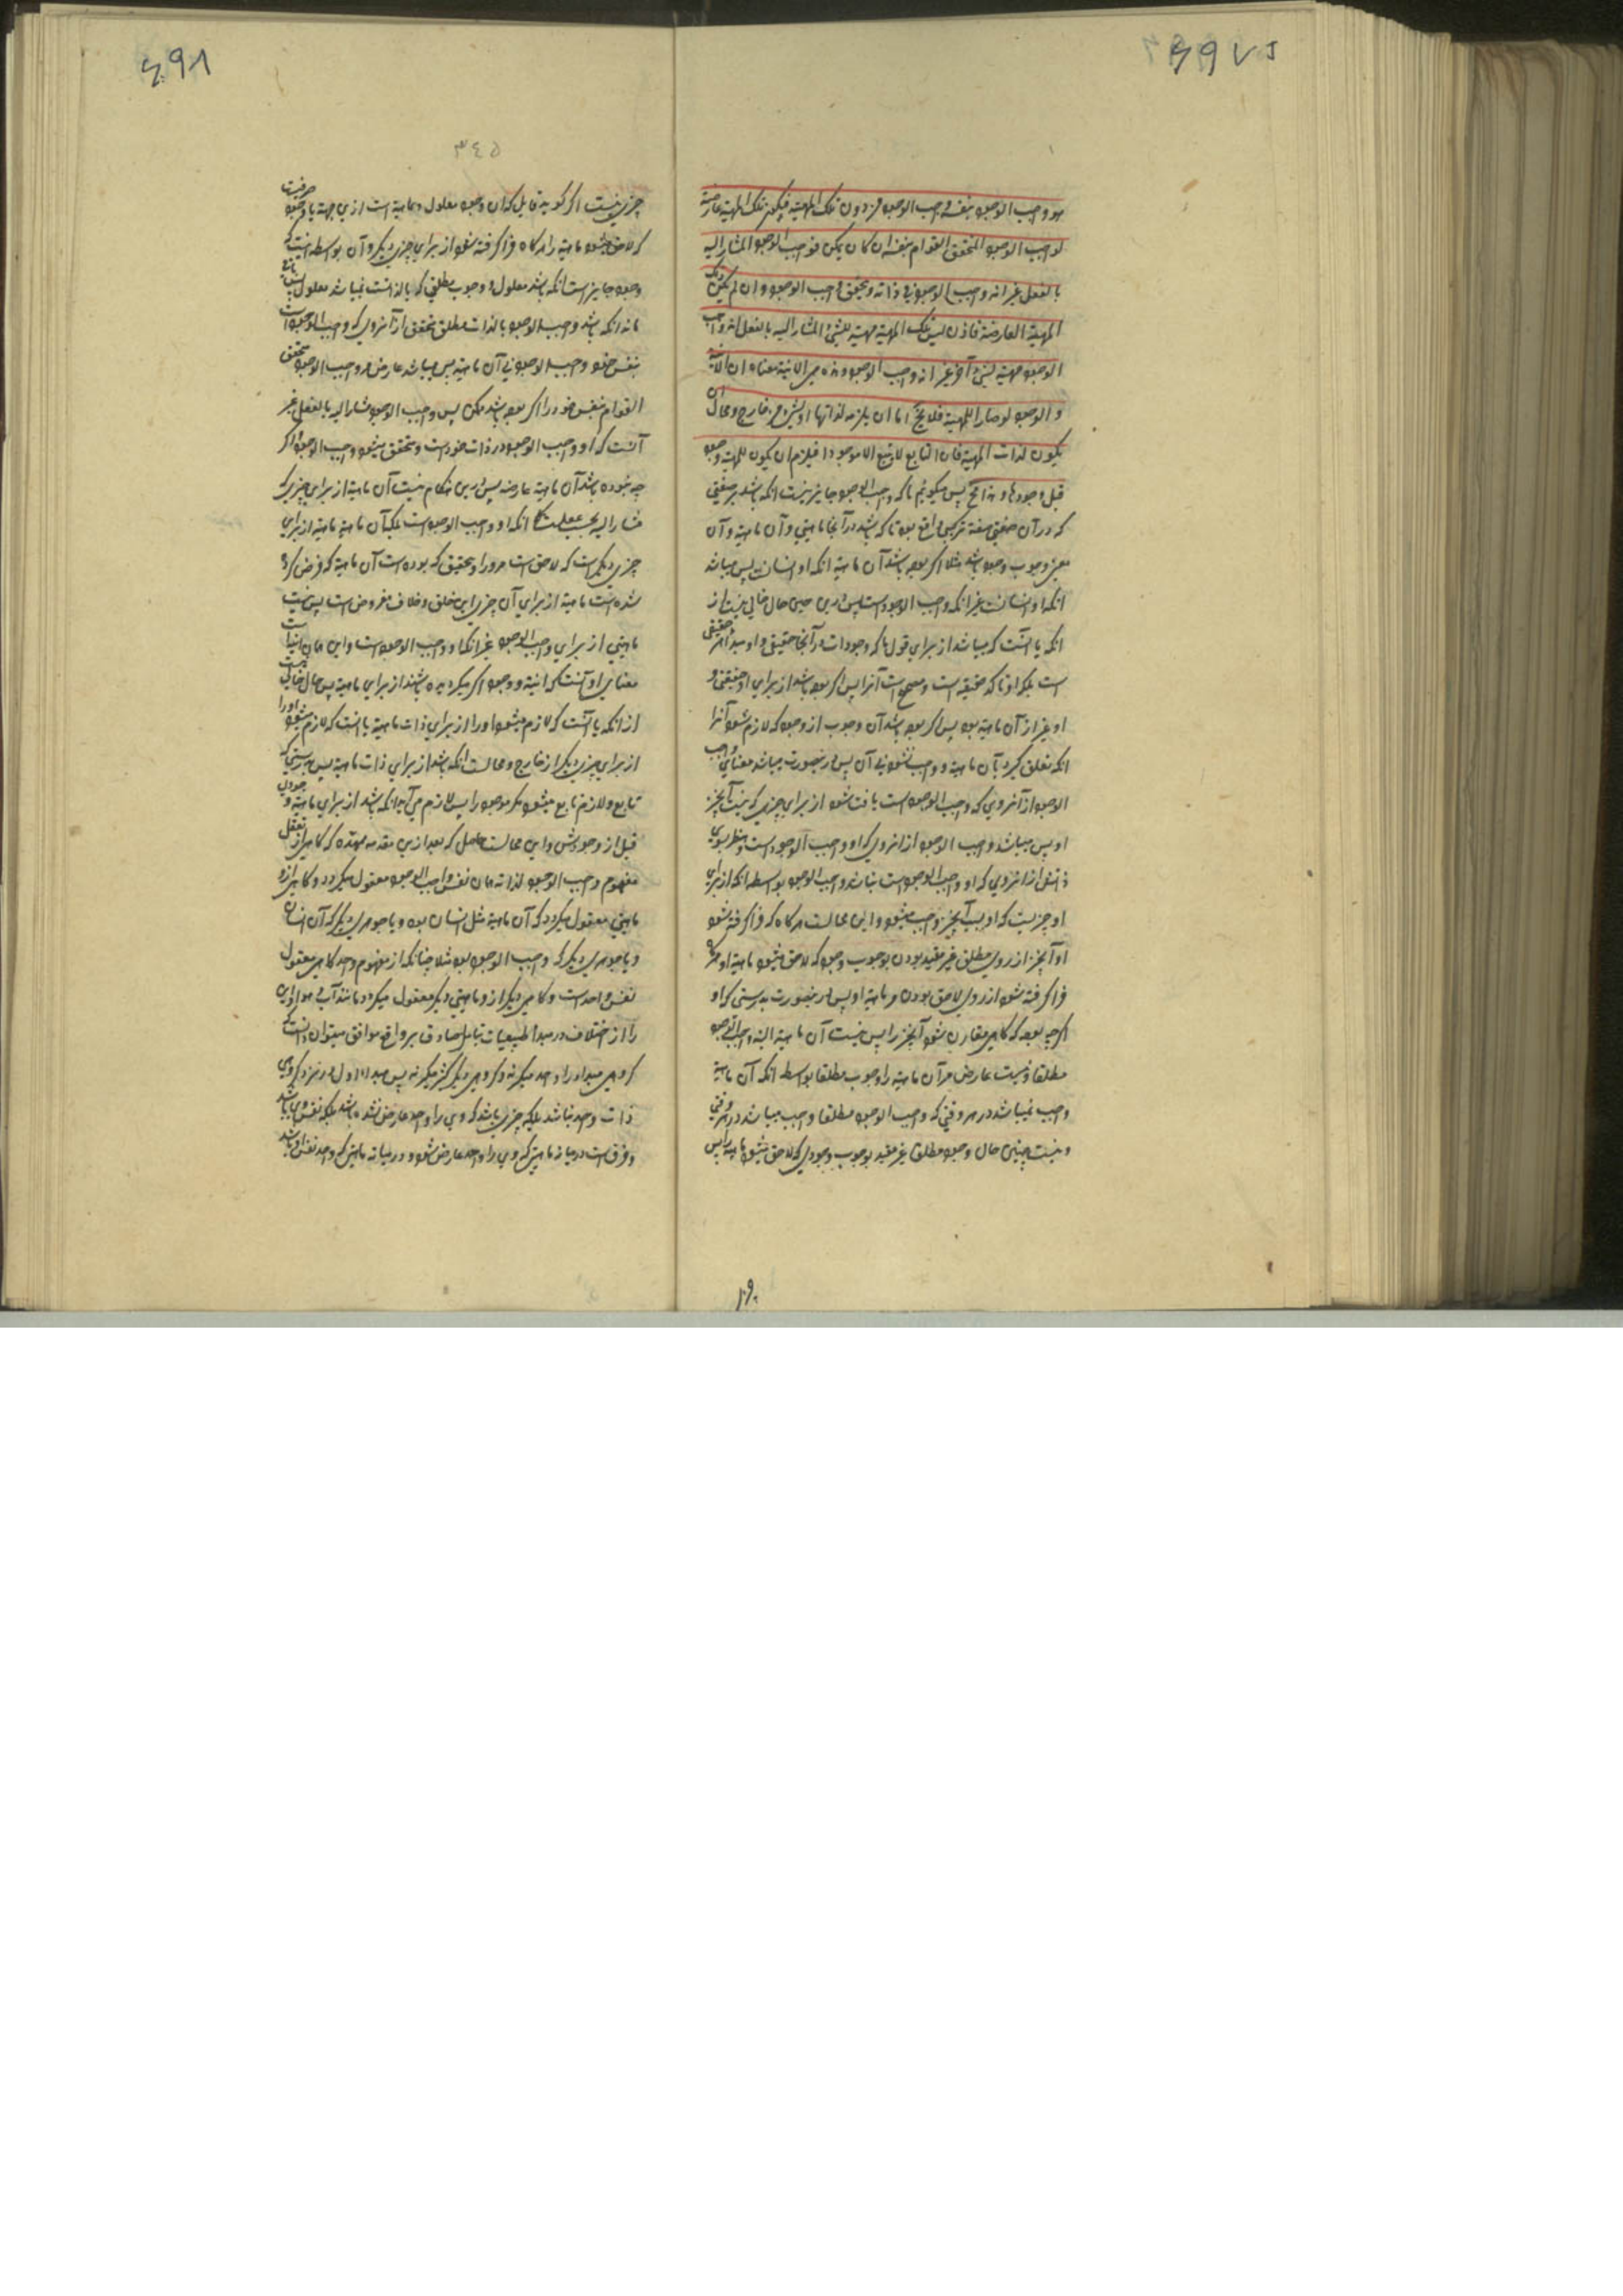 هو واجب الوجود بنفسه واجب الوجود من دون تلک المهیته فیکون تلک المهیته عارضة
لواجب الوجود المتحقق القوام بنفسه ان کان یمکن فواجب الوجود المشار الیه
بالفعل غیر انه واجب الوجود فی ذاته و یتحقق واجب الوجود و ان لم یکن تلک
المهیة العارضة فاذن لیس تلک المهیة مهیة للشیء المشار الیه بالفعل انه واجب
الوجود مهیة لشیء آخر غیر انه واجب الوجود و هذه هی الانیة معناه ان الانیة
و الوجود لو صارا للمهیة فلا یخ اما ان یلزمه لذاتها او لشیء من خارج و محال ان
یکون لذات المهیة فان التابع لا یتبع الا موجودا فیلزم ان یکون للمهیة وجود
قبل وجودها و هذا مح پس میگوئیم ما که واجب الوجود جایز نیست انکه باشد بر صفتی
که در آن صفتی صفة ترکیبی واقع بود تا که باشد در آنجا ماهیتی و آن ماهیة و آن
معنی وجوب وجود باشد مثلا اگر بوده باشد آن ماهیة انکه او انسان پس میباشد
انکه او انسانست غیر انکه واجب الوجود است پس درین حین حال خالی نیست از
انکه یا آنست که میباشد از برای قول ما که وجودات در آنجا حقیقی و او مبدأ هر حقیقی
است بلکه او تاکد حقیقه است و مصحح است آنرا پس اگر بوده باشد از برای او حقیقتی و
او غیر از آن ماهیة بود پس اگر بوده باشد آن وجوب از وجود که لازم شود آنرا
انکه تعلق گیرد بآن ماهیة و واجب نشود بی آن پس در ینصورت میباشد معنای واجب
الوجود از آنروی که واجب الوجود است یافت شود از برای چیزی که نیست آنچیز
او پس میباشد واجب الوجود از انروی که او واجب الوجود است و بنظر بسوی
ذاتش از انروی که او واجب الوجود است نباشد واجب الوجود بواسطه انکه از برای
او چیزیست که او بسبب آنچیز واجب میشود و این محالست هرگاه که فرا گرفته شود
او آنچیز از روی مطلق غیر مقید بودن بوجوب وجود که لاحق میشود ماهیة او هرگاه
فرا گرفته شود از روی لاحق بودن مر ماهیة او پس در ینصورت بدرستی که او
اگرچه بود که گاهی مقارن شود آنچیز را پس نیست آن ماهیة البته واجب الوجود
مطلقا و نیست عارض مر آن ماهیة را وجوب مطلقا بواسطه انکه آن ماهیة
واجب نمیباشد در هر وقتی که واجب الوجود مطلقا واجب میباشد در هر وقتی
و نیست چنین حال وجود مطلق غیر مقید بوجوب وجودی که لاحق میشود ماهیة را پس
۳۴۵
چیزی نیست اگر گوید قایل که آن وجود معلول ماهیة است ازین جهة یا وجود صرفیست
که لاحق میشود ماهیة را هرگاه فرا گرفته شود از برای چیزی دیگر و آن بواسطه اینست که
وجود جایز است انکه باشد معلول و وجوب مطلقی که بالذات است نمیباشد معلول پس باقی
ماند انکه باشد واجب الوجود بالذات مطلق متحقق از آنروی که واجب الوجود است
بنفس خود واجب الوجود بی آن ماهیة پس میباشد عارض مر واجب الوجود متحقق
القوام بنفس خود را اگر بوده باشد ممکن پس واجب الوجود مشار الیه بالفعل غیر
آنست که او واجب الوجود در ذات خود است و متحقق میشود واجب الوجود و اگر
چه نبوده باشد آن ماهیة عارضه پس درین هنگام نیست آن ماهیة از برای چیزی که
مشار الیه بحسب عقلست انکه او واجب الوجود است بلکه آن ماهیة ماهیة از برای
چیزی دیگر است که لاحق است مر او را و تحقیق که بوده است آن ماهیة که فرض کرده
شده است ماهیة از برای آن چیز این خلف و خلاف مفروض است پس نیست
ماهیتی از برای واجب الوجود غیر انکه او واجب الوجود است و این همان انیة است
معنای او آنست که انیة و وجود اگر گردیده باشند از برای ماهیة پس حال خالی نیست
از انکه یا آنست که لازم میشود او را از برای ذات ماهیة یا آنست که لازم میشود او را
از برای چیزی دیگر از خارج و محالست انکه باشد از برای ذات ماهیة پس بدرستی که
تابع و لازم تابع میشود مگر موجود را پس لازم می آید انکه باشد از برای ماهیة وجودی
قبل از وجودش و این محالست حاصل که بعد ازین مقدمه ممهده که گاهی از تعقل
مفهوم واجب الوجود لذاته همان نفس واجب الوجود معقول میگردد و گاهی از او
ماهیتی معقول میگردد که آن ماهیة مثل انسان بود و یا جوهری دیگر که آن انسان
و یا جوهری دیگر که واجب الوجود بود مثلا چنانکه از مفهوم واحد گاهی معقول
نفس واحد است و گاهی دیگر از و ماهیتی دیگر معقول میگردد مانند آب و هوا و این
را از اختلاف در مبدأ طبیعیات بتامل صادق بر واقع موافق میتوان دانست که
گروهی مبدأ را واحد میگیرند و گروهی دیگر کثیر میگیرند پس مبدأ اول در نزد گروهی
ذات واحد نباشد بلکه چیزی باشد که وی را واحد عارض شده باشد بلکه نفس وی باشد
و فرق است در میانه ماهیتی که وی را واحد عارض شود و در میانه ماهیتی که واحد نفس او باشد